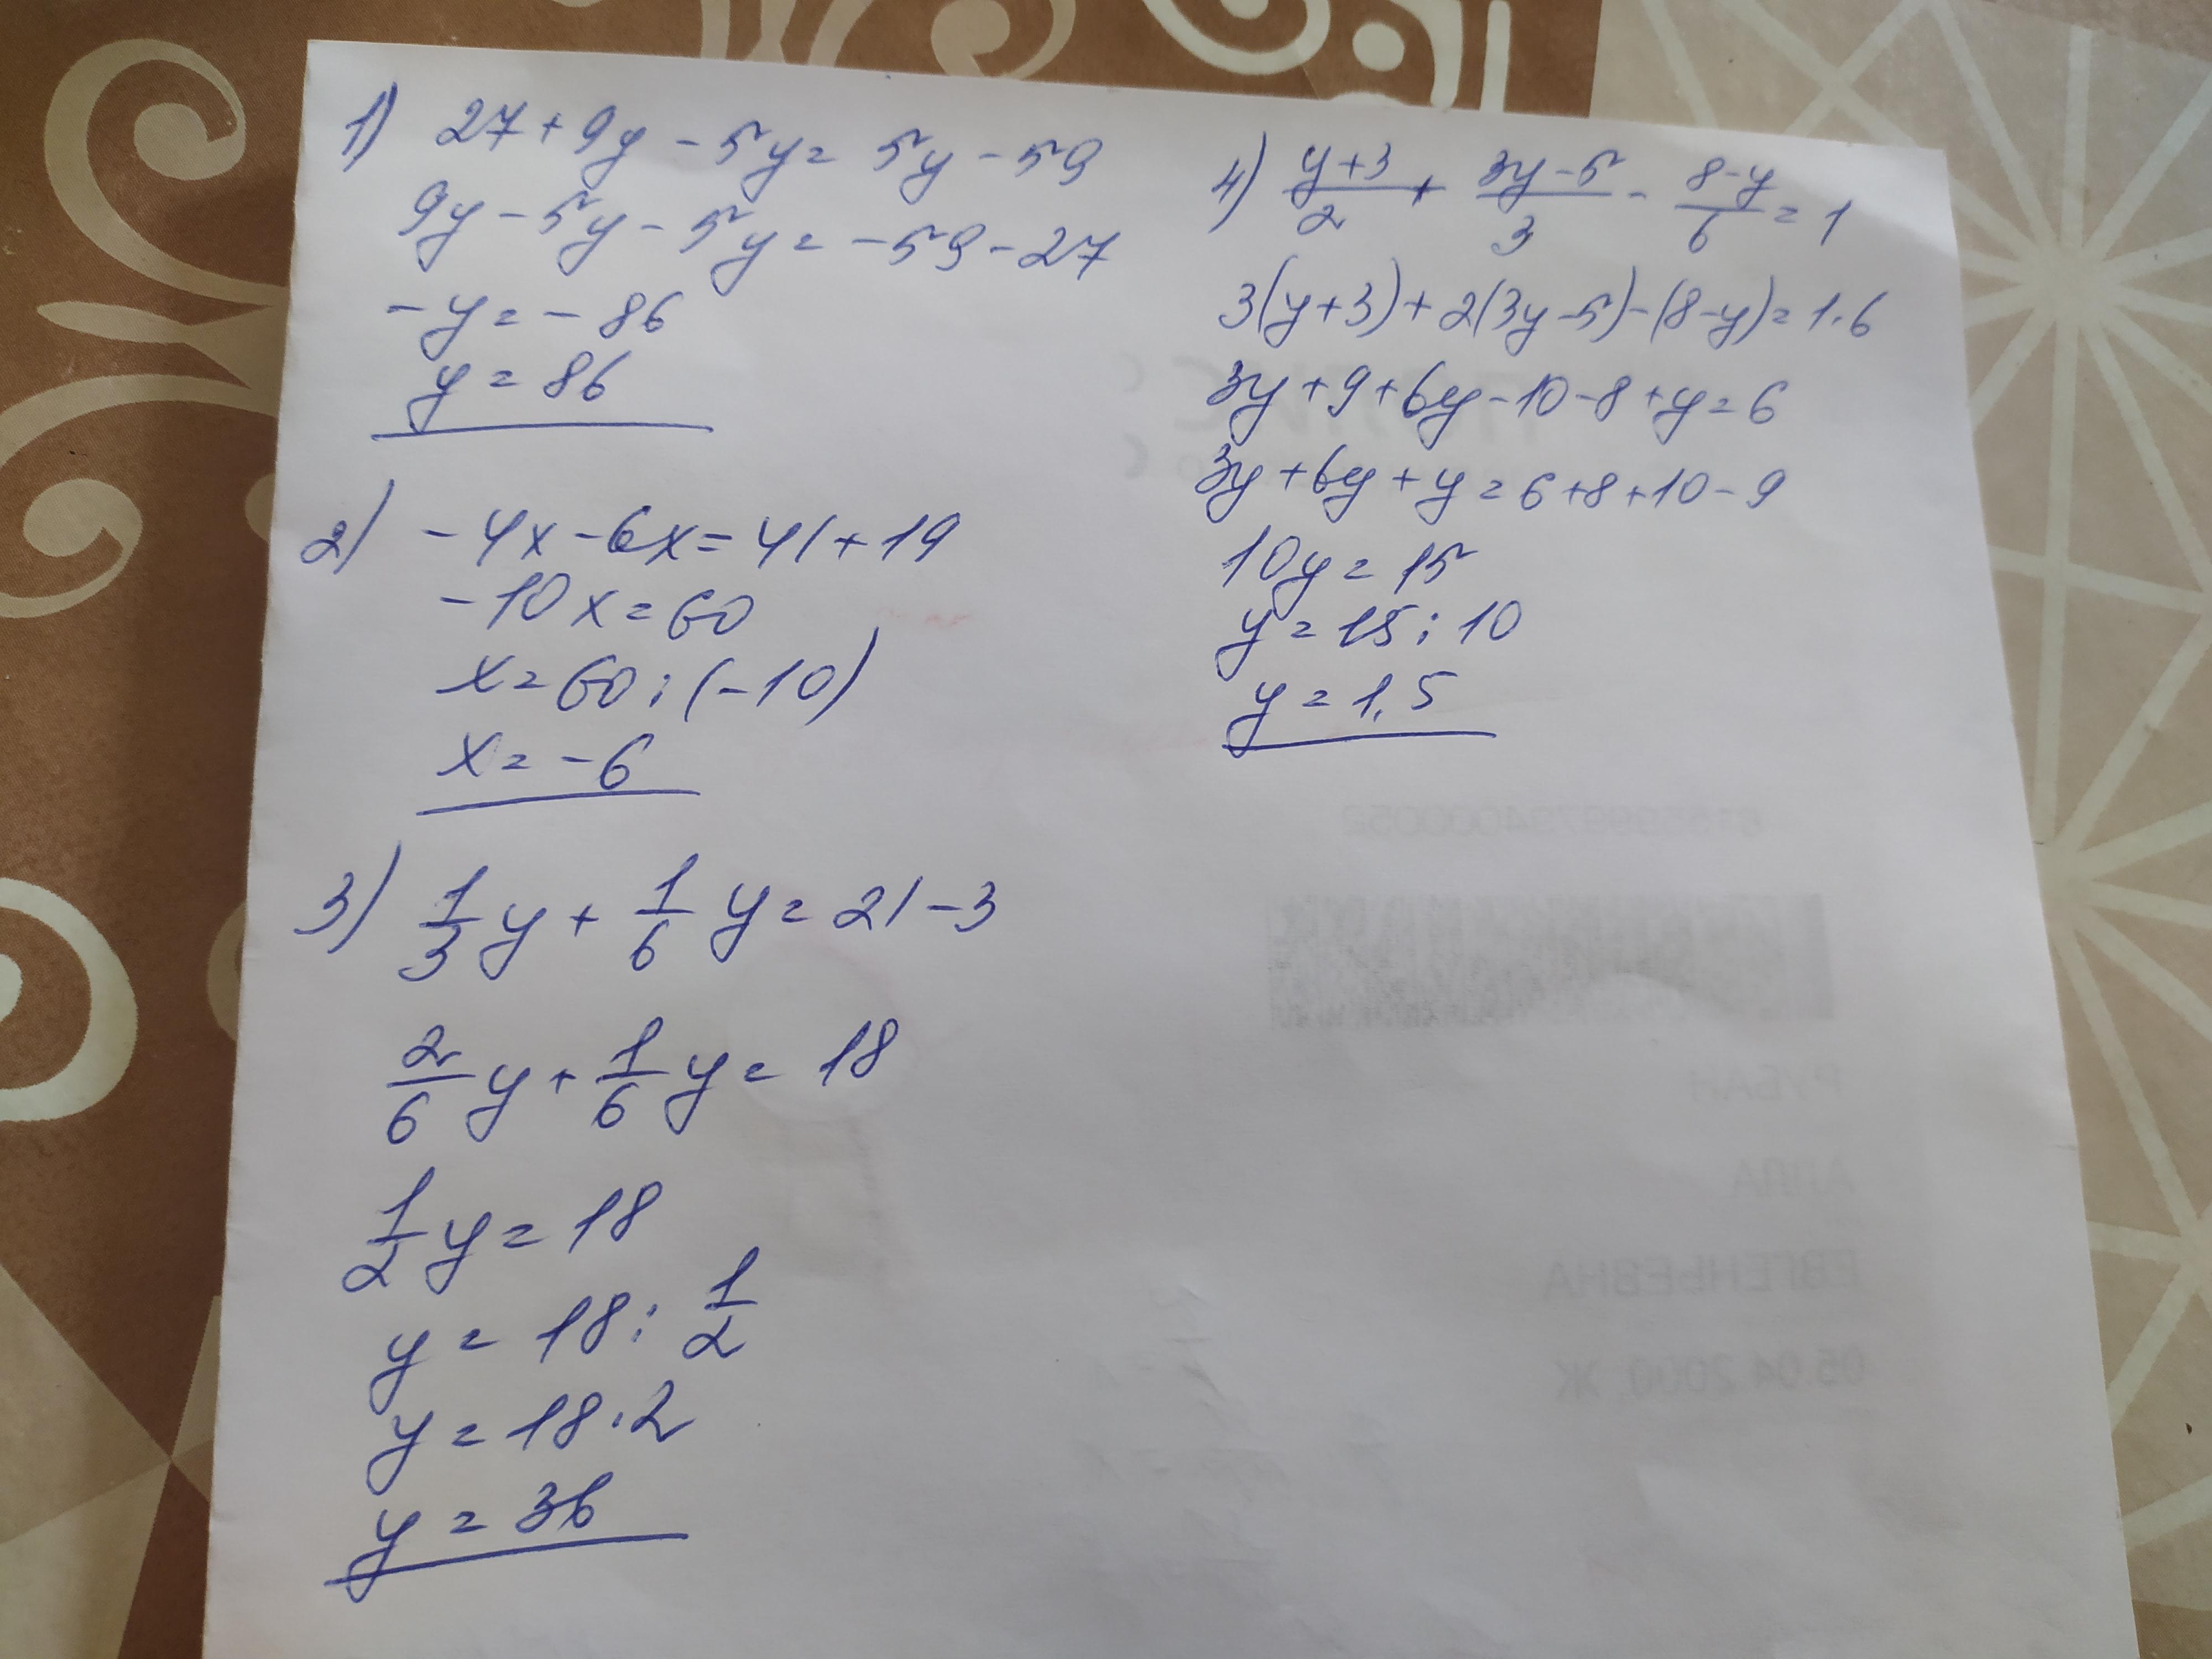 1) 27 + 9y - 5y = 5y - 59
9y - 5y - 5y = -59 - 27
-y = -86
y = 86
2) -4x - 6x = 41 + 19
-10x = 60
x = 60 : (-10)
x = -6
3) 1/3 y + 1/6 y = 21 - 3
2/6 y + 1/6 y = 18
1/2 y = 18
y = 18 : 1/2
y = 18 · 2
y = 36
4) (y+3)/2 + (3y-5)/3 - (8-y)/6 = 1
3(y+3) + 2(3y-5) - (8-y) = 1·6
3y + 9 + 6y - 10 - 8 + y = 6
3y + 6y + y = 6 + 8 + 10 - 9
10y = 15
y = 15 : 10
y = 1,5
ПОЛИС
РУБАН
АЛЛА
ЕВГЕНЬЕВНА
05.04.2000, Ж